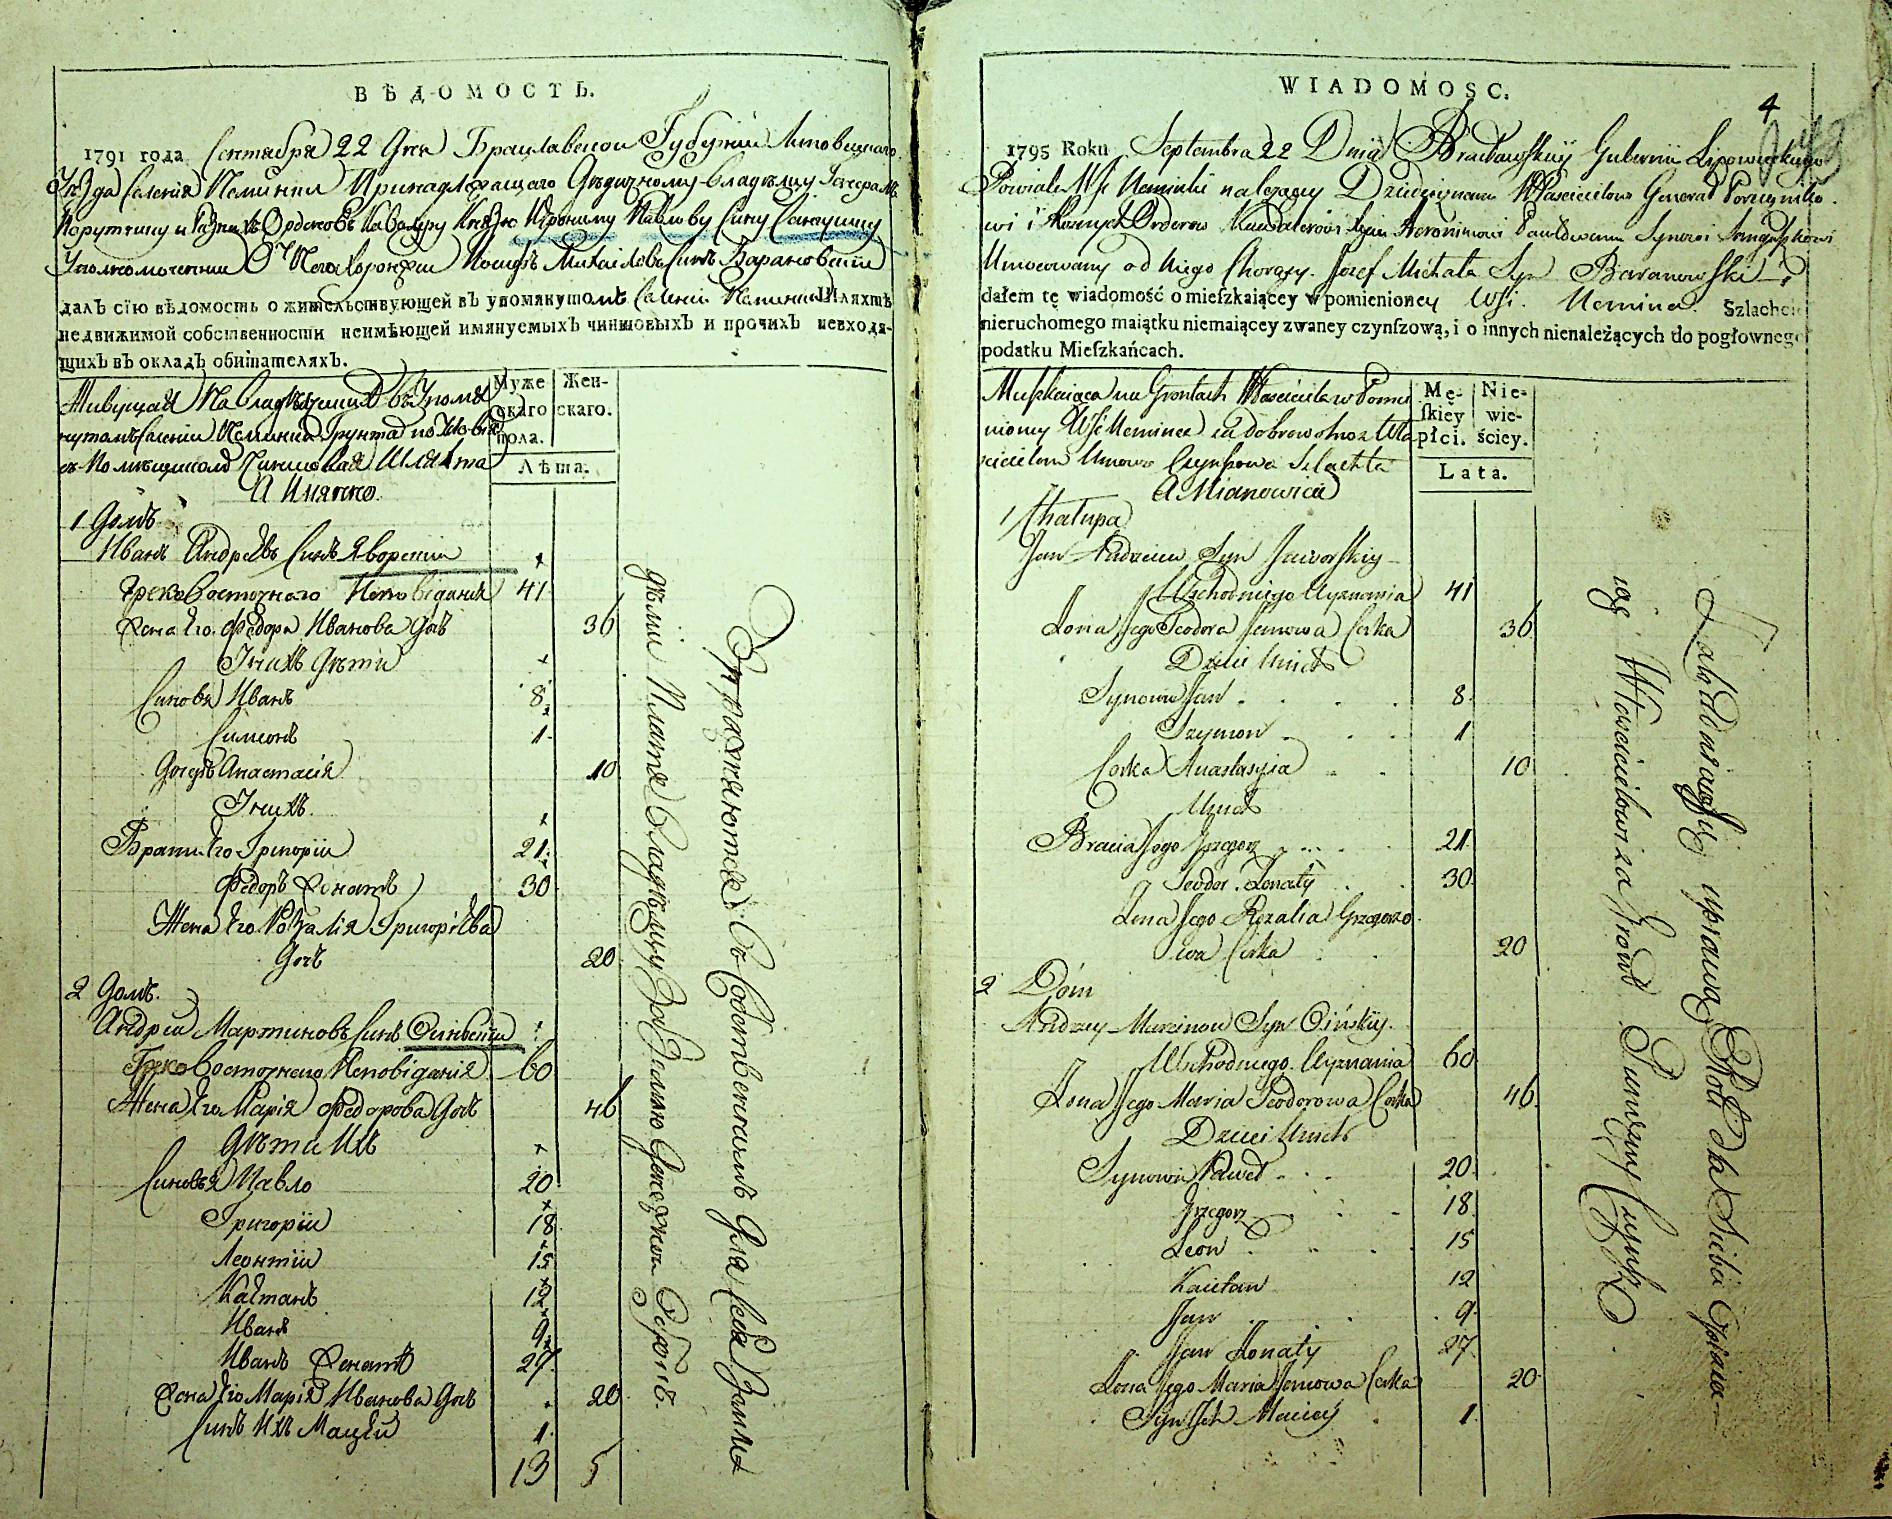 ВѢДОМОСТЬ.
1791 года Сентября 22 Дня Брацлавской Губернии Липовецкаго
Уѣзда Селения Неминки Принадлежащаго Дѣдичному владѣлцу Генералъ
Порутчику и разныхъ Орденовъ Кавалеру Князю Иерониму Павлову Сину Сангушку
Уполномоченни От Него Хоронжи Иосифъ Михайловъ Синъ Барановский
далъ сїю вѣдомость о жительствующей въ упомянутомъ Селении Неминки Шляхтѣ
недвижимой собственности неимѣющей имянуемыхъ чиншовыхъ и прочихъ невходя-
щихъ въ окладъ обитателяхъ.
Живущая На владѣлцини въ Упомя
нутомъ Селении Неминки Грунта по
съ Помѣщиком Чиншовая Шляхта
А Имянно.
Муже
скаго
пола.
Жен-
скаго.
Лѣта.
1 Домъ
Иванъ Андреевъ Синъ Яворский
Греко Восточнаго Исповедания 41
Жена Его Федора Иванова Дочь 36
У них Дѣти
Синовя Иванъ 8
Симеонъ 1
Дочерь Анастасия 10
У них.
Брати Его Григорїи 21
Федоръ Женатъ 30
Жена Его Розалїя Григорїева
Дочь 20
2 Домъ.
Андрей Мартиновъ Синъ Синский
Греко Восточнаго Исповеданїя 60
Жена Его Марїя Федорова Дочь 46
Дѣти Ихъ
Синовья Павло 20
Григорїи 18
Леонтїи 15
Каетанъ 12
Иванъ 9
Иванъ Женатъ 27
Жена Его Марїя Иванова Дочь 20
Синъ Ихъ Мацѣй 1
13 5
Упражняются Въ Собственномъ Для Себя
дѣлии Платя Владѣлцу За Землю Денежной Чиншъ.
WIADOMOSC.
4
1795 Roku Septembra 22 Dnia Bracławskiiy Gubernii Lipowieckiego
Powiatu Wsi Neminki należący Dziedzicznemu Właścicielowi Generał Poruczniko
wi i Roznych Orderow Kawalerowi Xięciu Hieronimowi Pawłowemu Synowi Sanguszkowi
Umocowany od Niego Chorąży Jozef Michała Syn Baranowski
dałem tę wiadomość o mieſzkaiącey w pomienioney Wsi Nemince Szlachcie
nieruchomego maiątku niemaiącey zwaney czynſzową, i o innych nienależących do pogłownego
podatku Mieſzkańcach.
Mięszkaiąca na Grontach Właściciela w Pomie
nioney Wsi Nemince za dobrowolno z Wła
ścicielem Umowo Czynszowa Szlachta
A Mianowicie
Mę-
ſkiey
płci.
Nie-
wie-
ściey.
Lata.
1 Chałupa
Jan Andrzeiew Syn Jaworskiy
Wschodniego Wyznania 41
Żona Jego Teodora Janowa Corka 36
Dzieci Unich
Synowie Jan 8
Szymon 1
Corka Anastasyia 10
Unich
Bracia Jego Grzegorz 21
Teodor Żonaty 30
Żona Jego Rozalia Grzegorzo
wa Corka 20
2 Dom
Andrzey Marcinow Syn Sińskiy.
Wschodniego Wyznania 60
Żona Jego Maria Teodorowa Corka 46
Dzieci Unich
Synowie Paweł 20
Grzegorz 18
Leon 15
Kaietan 12
Jan 9
Jan Żonaty 27
Żona Jego Maria Janowa Corka 20
Syn Ich Maciey 1
uprawą Roli Dla Siebie
iąc Właścicielowi za Gront Czynsz